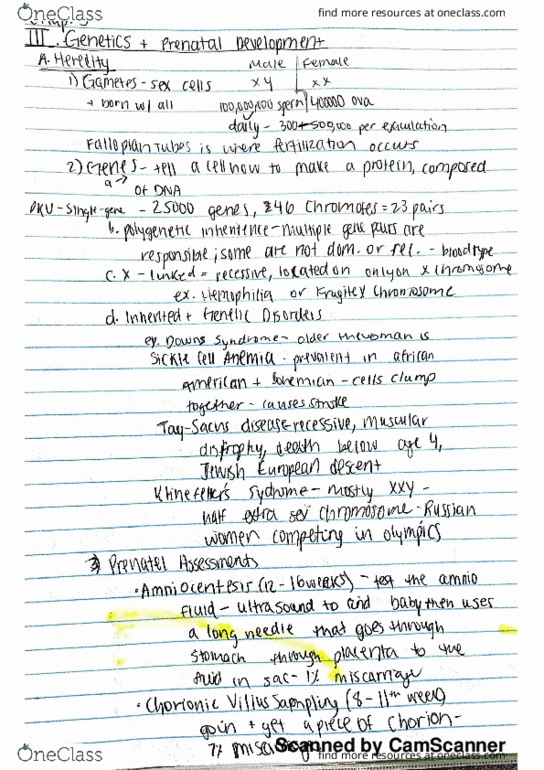 OneClass
find more resources at oneclass.com
III. Genetics + Prenatal Development
A. Heredity Male Female
1) Gametes - sex cells xy xx
+ born w/ all 100,000,000 sperm 400000 ova
daily - 300+500,000 per ejaculation
Fallopian Tubes is where fertilization occurs
2) Genes - tell a cell how to make a protein, composed
a → of DNA
PKU - single-gene - 25000 genes, 46 Chromotes = 23 pairs
b. polygenetic inheritence - multiple gene pairs are
responsible; some are not dom. or rec. - bloodtype
c. X - linked = recessive, located on only on x chromosome
ex. Hemophilia or Fragile X Chromosome
d. Inherited + Genetic Disorders
ex. Downs Syndrome - older the woman is
Sickle Cell Anemia - prevalent in african
American + Bohemian - cells clump
together - causes stroke
Tay-Sachs disease - recessive, muscular
distrophy, death below age 4,
Jewish European descent
Klinefelter's Sydrome - mostly XXY -
half extra sex chromosome - Russian
women competing in olympics
3) Prenatel Assessments
• Amniocentesis (12 - 16 weeks) - test the amnio
fluid - ultrasound to find baby then uses
a long needle that goes through
stomach through placenta to the
fluid in sac - 1% miscarriage
• Chorionic Villus Sampling (8 - 11th week)
go in + get a piece of chorion -
Scanned by CamScanner
OneClass
find more resources at oneclass.com